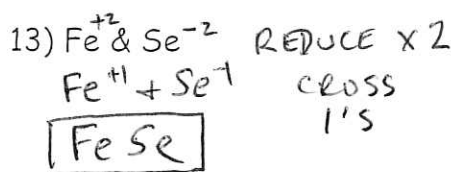 13) Fe⁺² & Se⁻² REDUCE X 2
Fe⁺¹ + Se⁻¹ CROSS
1'S
FeSe